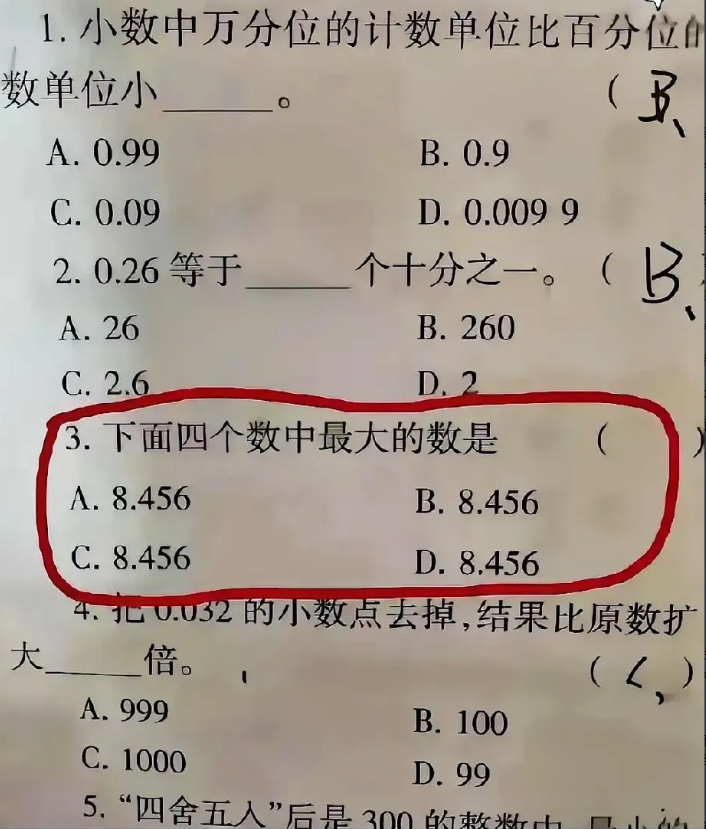 1. 小数中万分位的计数单位比百分位的
数单位小______。 ( B、
A. 0.99 B. 0.9
C. 0.09 D. 0.009 9
2. 0.26 等于______个十分之一。 ( B、
A. 26 B. 260
C. 2.6 D. 2
3. 下面四个数中最大的数是 ( )
A. 8.456 B. 8.456
C. 8.456 D. 8.456
4. 把 0.032 的小数点去掉,结果比原数扩
大______倍。 ( C、)
A. 999 B. 100
C. 1000 D. 99
5. “四舍五入”后是 300 的整数中